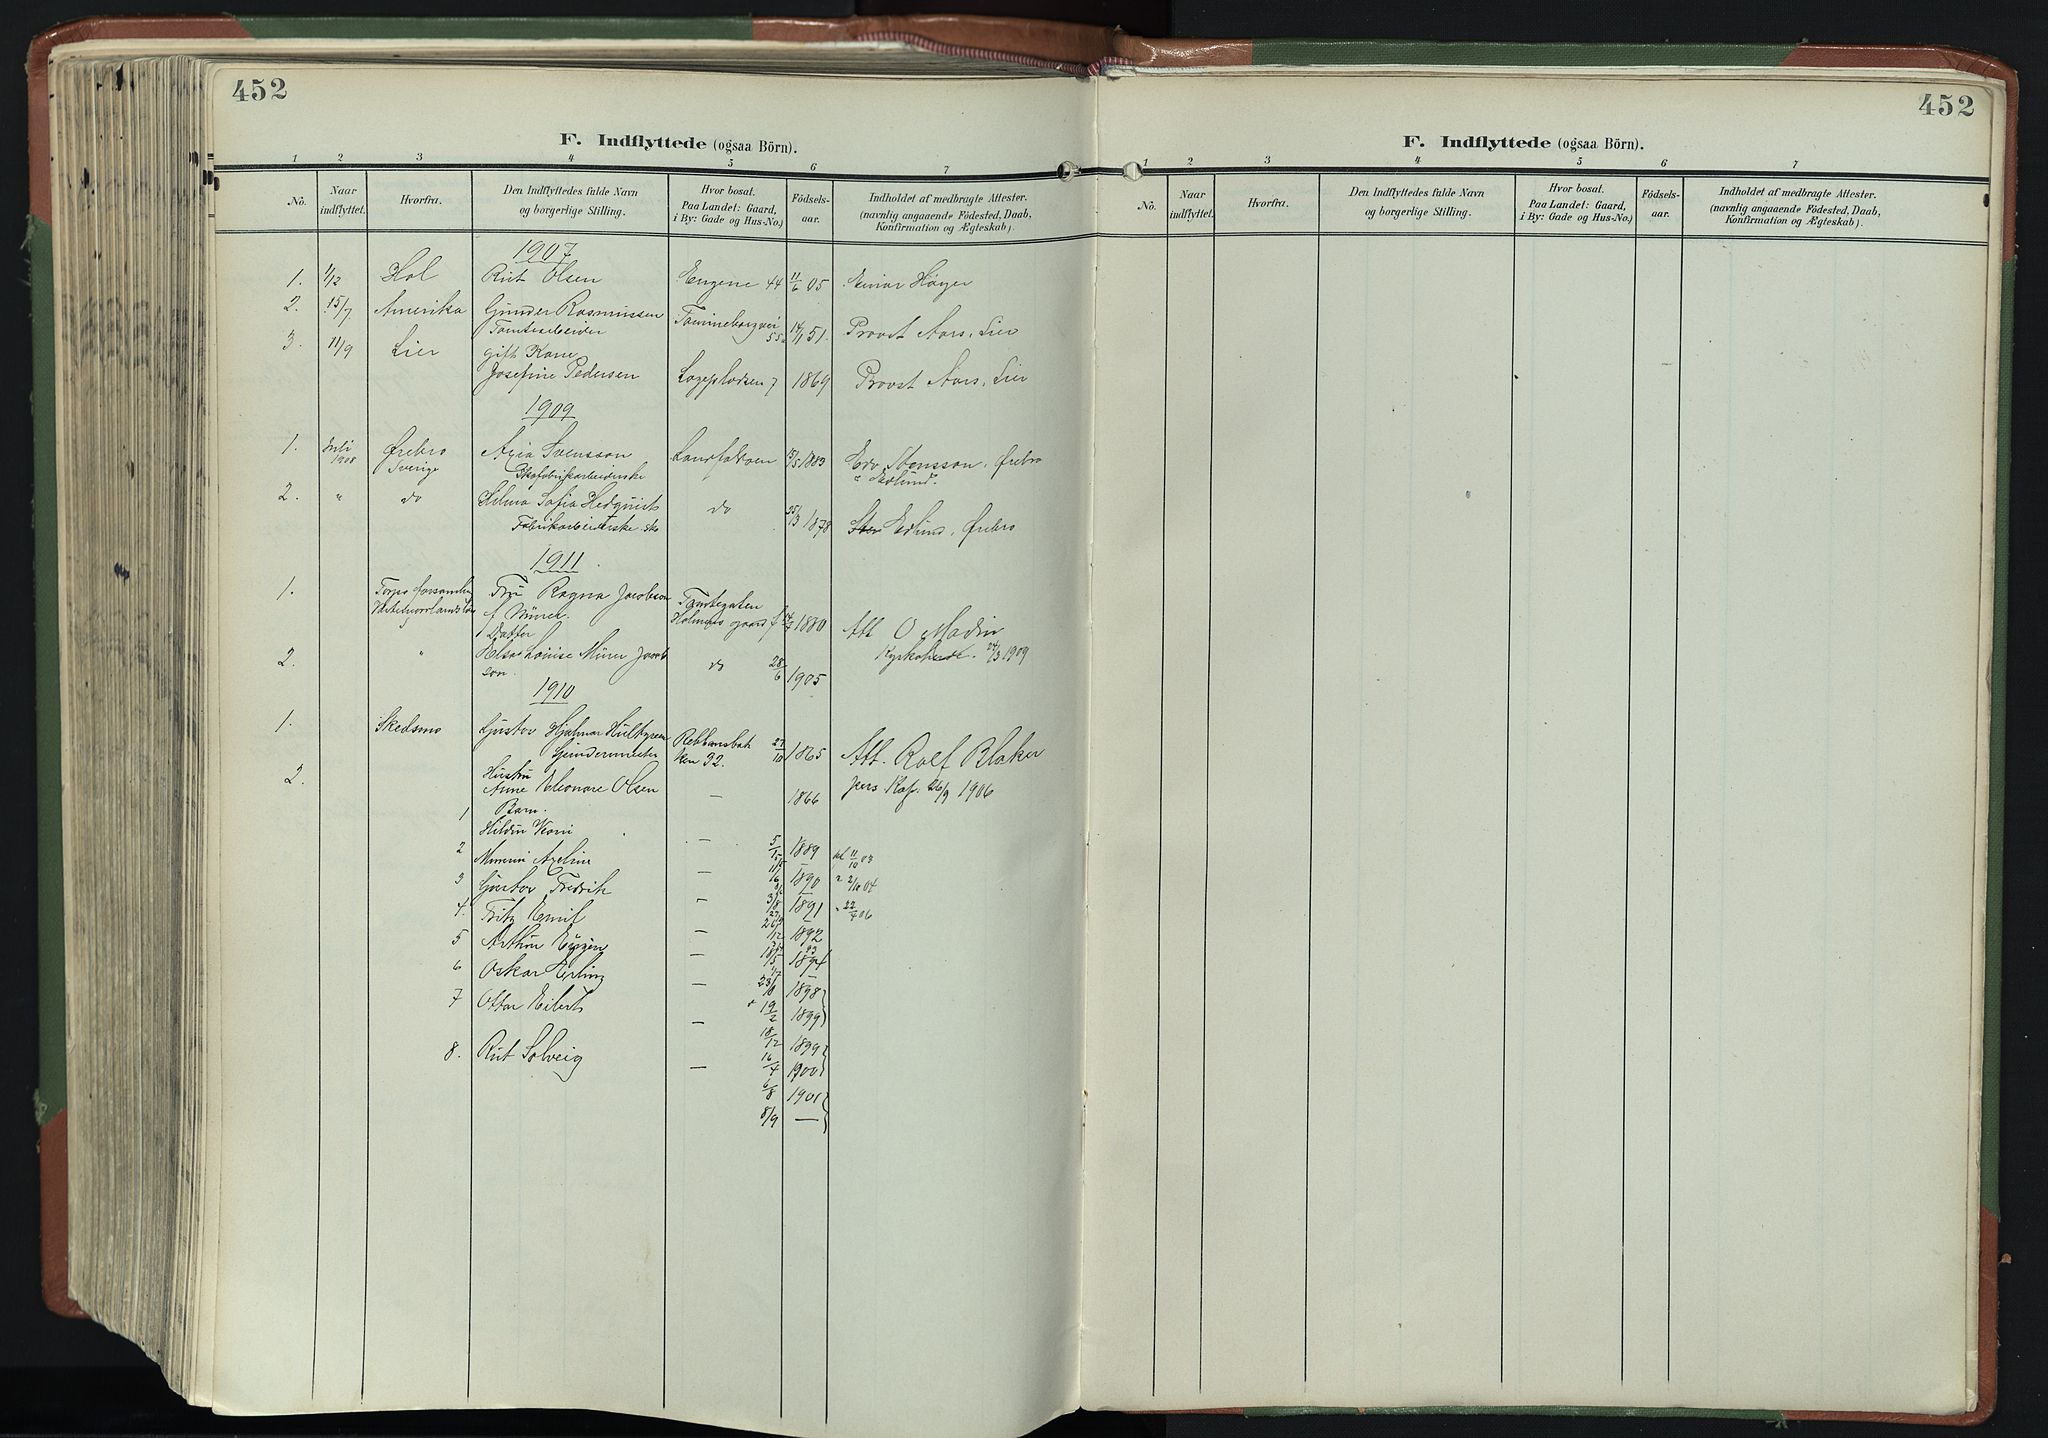 452
F. Indflyttede (ogsaa Börn).
1 2 3 4 5 6 7
No. Naar indflyttet. Hvorfra. Den Indflyttedes fulde Navn og borgerlige Stilling. Hvor bosat. Paa Landet: Gaard, i By: Gade og Hus-No.) Födsels-aar. Indholdet af medbragte Attester. (navnlig angaaende Födested, Daab, Konfirmation og Ægteskab).
1907
1. 1/12 Hol Rut Olsen Engene 44 11/6 05 Einar Høyer
2. 15/7 Amerika Gunder Rasmussen
Tomtearbeider 14/1 51. Provst Aars, Lier
3. 11/9 Lier gift Kone
Josefine Pedersen 7 1869 Provst Aars, Lier
1909
1. Juli 1908 Ørebro Sverige Svensson 1883 Ørebro
2. " do Hilma Sofia Hedquist do 25/3 1878 Edlund, Ørebro
Fabrikarbeiderske
1911
1. Torps forsamling Fru Ragna Jacobson Tomtegaten
f. Mürer. gaard 1880 Att O Modin
Datter
2. " Elsa Louise Mürer Jacob
son. do 28/6 1905 24/3 1909
1910
1. Skedsmo Gustav Hjalmar Hultgren 32. 27/10 1865 Att. Rolf Blaker
2. Hustru
Anne Eleonore Olsen — 1866 pers Kap. 26/9 1906
Barn.
1 Hildur — 5/12 1889 11/10 03
2 Axeline — 1890 2/10 04
3 Gustav Fredrik — 3/8 1891 22/4 06
4. Fritz Emil — 1892
5 Arthur — 18/5 1894
6 Oskar Erling — 23/8 1898
7 Ottar — 19/2 1899
18/12 1899
8. Rut Solveig — 16/4 1900
6/8 1901
8/9 —
452
F. Indflyttede (ogsaa Börn).
1 2 3 4 5 6 7
No. Naar indflyttet. Hvorfra. Den Indflyttedes fulde Navn og borgerlige Stilling. Hvor bosat. Paa Landet: Gaard, i By: Gade og Hus-No.) Födsels-aar. Indholdet af medbragte Attester. (navnlig angaaende Födested, Daab, Konfirmation og Ægteskab).